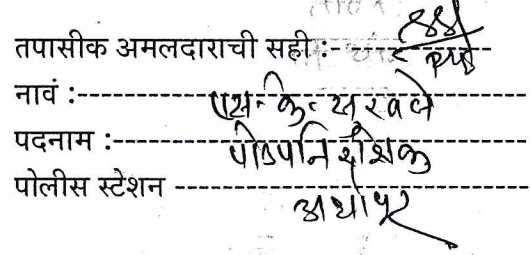 तपासीक अमलदाराची सही :-
नावं :- एस. के. सरवले
पदनाम :- पोउपनिरीक्षक
पोलीस स्टेशन